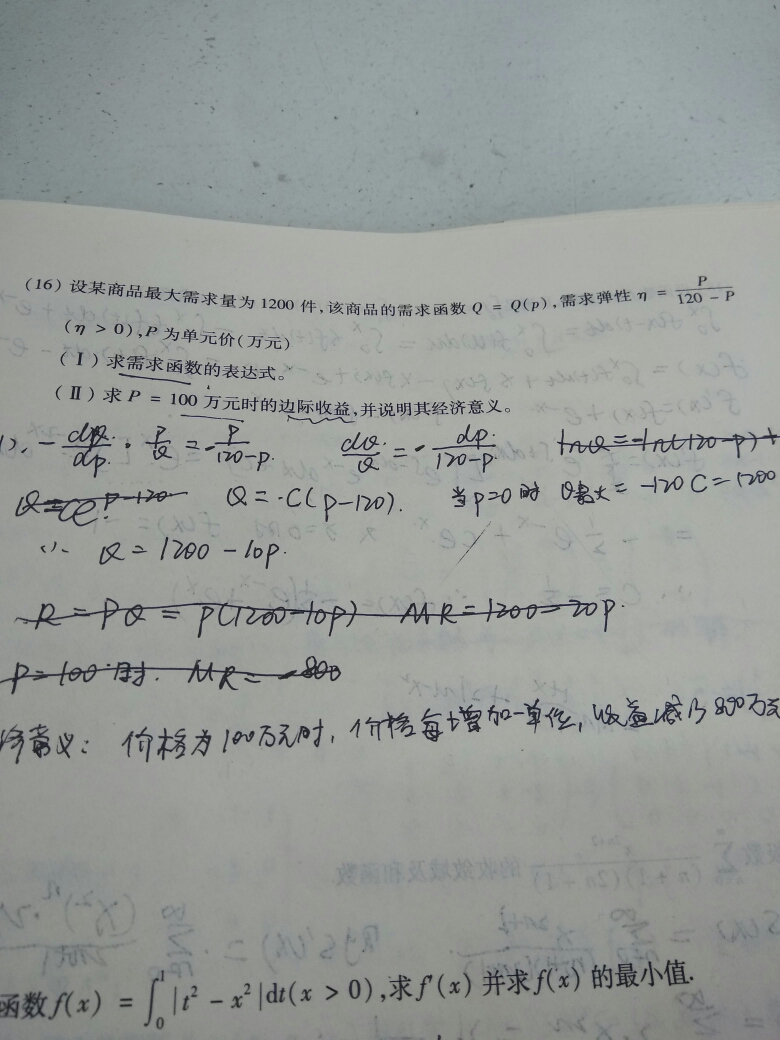 (16) 设某商品最大需求量为 1200 件,该商品的需求函数 Q = Q(p),需求弹性 η = P/(120 - P)
(η > 0),P 为单元价(万元)
(Ⅰ) 求需求函数的表达式。
(Ⅱ) 求 P = 100 万元时的边际收益,并说明其经济意义。
1). -dQ/dp · P/Q = P/(120-p) dQ/Q = -dp/(120-p) lnQ = ln(120-p)+
Q = Ce^(p-120) Q = -C(p-120). 当p=0时 Q最大 = -120C = 1200
∴ Q = 1200 - 10p.
R = PQ = p(1200-10p) MR = 1200 - 20p.
P = 100时. MR = -800
济意义: 价格为100万元时, 价格每增加一单位, 收益减少800万元
函数f(x) = ∫₀¹|t² - x²|dt(x > 0),求f'(x)并求f(x)的最小值.